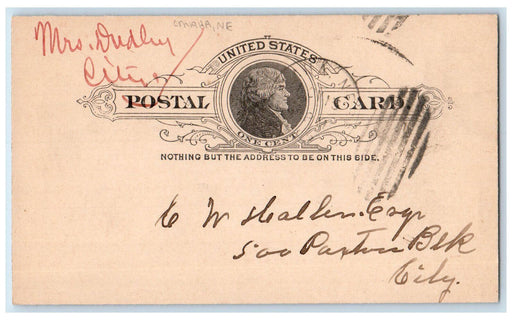 OMAHA, NE
Mrs. Dudley
City
UNITED STATES
POSTAL CARD.
ONE CENT
NOTHING BUT THE ADDRESS TO BE ON THIS SIDE.
C W Haller. Esqr
500 Paxton Blk
City.